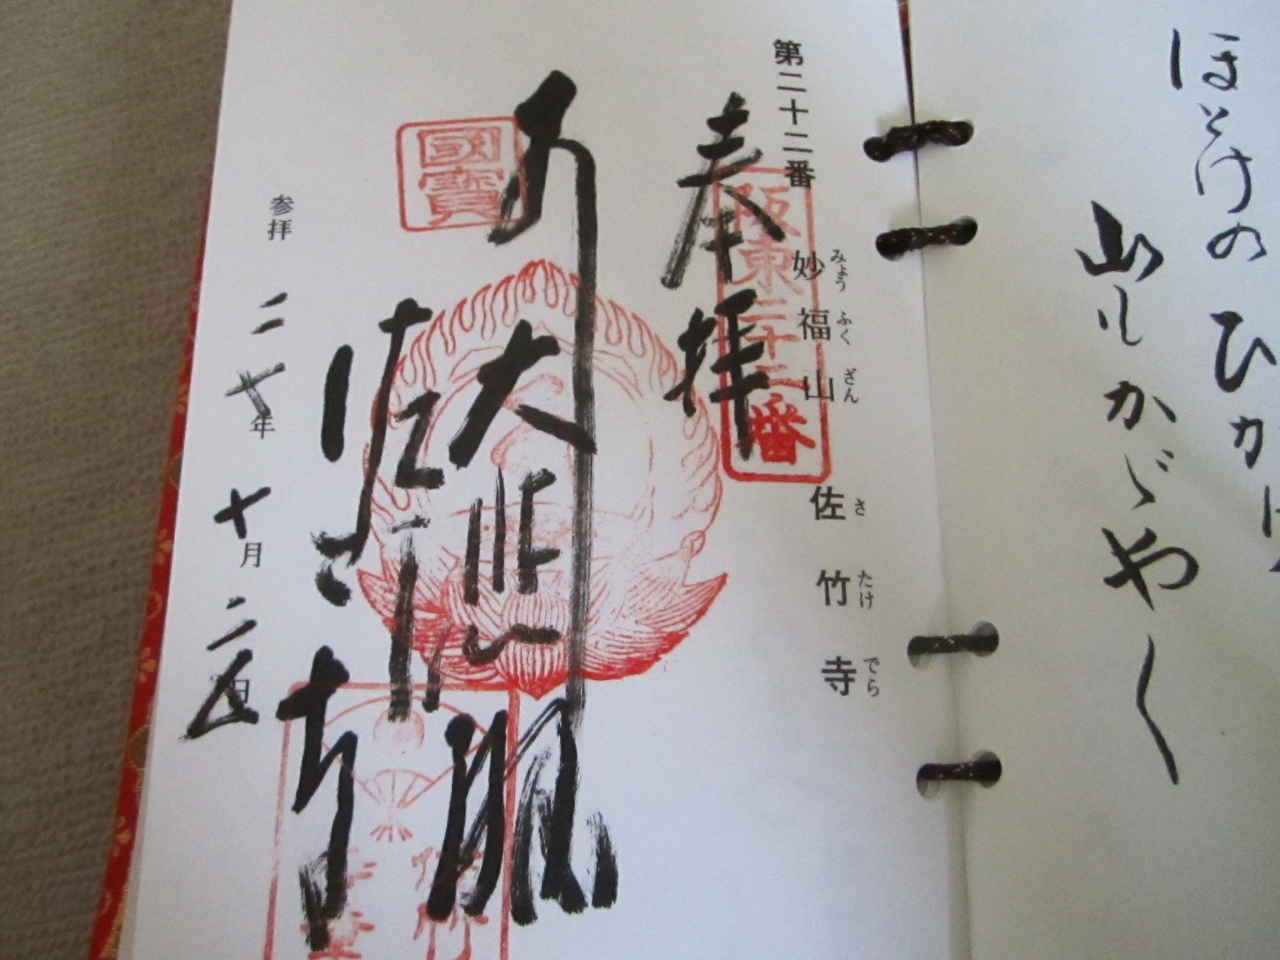 ほとけの ひか
山しかゞやく
第二十二番
妙福山 佐竹寺
みょうふくざん さたけでら
奉拝
阪東二十二番
大悲
國寶
佐竹寺
佐竹
参拝 二十年 十月 二六日